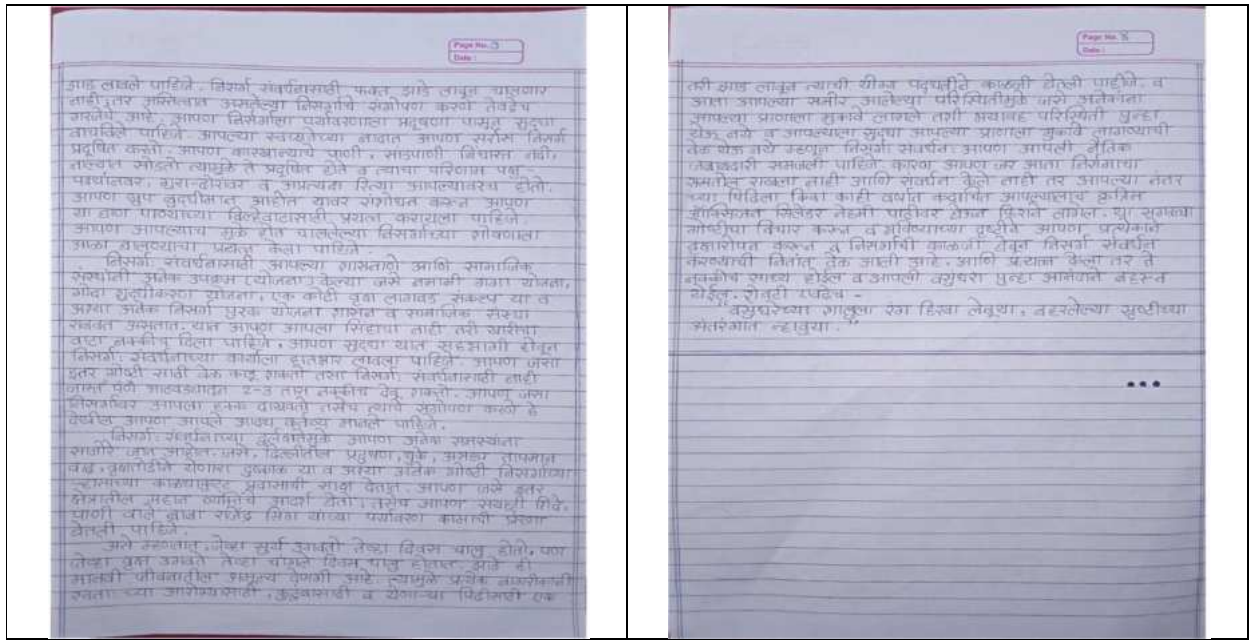 Page No. 3
Date :
झाड लावले पाहिजे. निसर्ग संवर्धनासाठी फक्त झाडे लावून चालणार
नाही, तर अस्तित्वात असलेल्या निसर्गाचे संगोपण करणे तेवढेच
गरजेचे आहे. आपण निसर्गाला पर्यावरणाला प्रदूषणा पासून सुद्धा
वाचविले पाहिजे. आपल्या स्वच्छतेच्या नादात आपण सर्रास निसर्ग
प्रदूषित करतो. आपण कारखान्याचे पाणी, सांडपाणी विचारत नदी,
नाल्यात सोडतो त्यामुळे ते प्रदूषित होते व त्याचा परिणाम पशु-
पक्ष्यांनवर, गुरा-ढोरांवर व अप्रत्यक्ष रित्या आपल्यावरच होतो.
आपण खुप बुध्दीमान आहोत यावर संशोधन करून आपण
या घाण पाण्याच्या विल्हेवाटासाठी प्रयत्न करायला पाहिजे.
आपण आपल्याच मुळे होत चाललेल्या निसर्गाच्या शोषणाला
आळा घालण्याचा प्रयत्न केला पाहिजे.
निसर्ग संवर्धनासाठी आपल्या शासनाने आणि सामाजिक
संस्थांनी अनेक उपक्रम (योजना) केल्या जसे नमामी गंगा योजना,
गोदा शुद्धीकरण योजना, एक कोटी वृक्ष लागवड संकल्प या व
अश्या अनेक निसर्ग पुरक योजना शासन व सामाजिक संस्था
राबवत असतात. यात आपण आपला सिंहाचा नाही तरी खारीचा
वाटा नक्कीच दिला पाहिजे. आपण सुद्धा यात सहभागी होवून
निसर्ग संवर्धनाच्या कार्याला हातभार लावला पाहिजे. आपण जसा
इतर गोष्टी साठी वेळ काढू शकतो तसा निसर्ग संवर्धनासाठी नाही
जास्त पण आठवड्यातून 2-3 तास नक्कीच देवू शकतो. आपण जसा
निसर्गावर आपला हक्क दाखवतो तसेच त्याचे संगोपण करणे हे
देखील आपण आपले आद्य कर्तव्य मानले पाहिजे.
निसर्ग संवर्धनाच्या दुर्लक्षामुळे आपण अनेक समस्यांना
सामोरे जात आहोत. जसे, दिल्लीतील प्रदुषण, धुके, असह्य तापमान
वाढ, वृक्षतोडीने येणारा दुष्काळ या व अश्या अनेक गोष्टी निसर्गाच्या
ऱ्हासाच्या काळ्याकुट्ट प्रवासाची साक्ष देतात. आपण जसे इतर
क्षेत्रातील महान व्यक्तिंचे आदर्श घेतो, तसेच आपण सयाजी शिंदे,
पाणी वाले बाबा राजेंद्र सिंग यांच्या पर्यावरण कामाची प्रेरणा
घेतली पाहिजे.
असे म्हणतात, जेव्हा सुर्य उगवतो तेव्हा दिवस चालु होतो, पण
जेव्हा वृक्ष उगवते तेव्हा चांगले दिवस चालु होतात. झाडे ही
मानवी जीवनातील अमुल्य देणगी आहे त्यामुळे प्रत्येक नागरीकांनी
स्वतः च्या आरोग्यासाठी, कुटुंबासाठी व येणाऱ्या पिढीसाठी एक
Page No. 8
Date :
तरी झाड लावून त्याची योग्य पद्धतीने काळजी घेतली पाहीजे. व
आता आपल्या समोर आलेल्या परिस्थितीमुळे जसे अनेकांना
आपल्या प्राणाला मुकावे लागले तशी भयावह परिस्थिती पुन्हा
येऊ नये व आपल्याला सुद्धा आपल्या प्राणाला मुकावे लागण्याची
वेळ येऊ नये म्हणून निसर्ग संवर्धन आपण आपली नैतिक
जबाबदारी समजली पाहिजे. कारण आपण जर आता निसर्गाचा
समतोल राखला नाही आणि संवर्धन केले नाही तर आपल्या नंतर
च्या पिढीला किंवा काही वर्षात कदाचित आपल्यालाच कृत्रिम
ऑक्सिजन सिलेंडर नेहमी पाठीवर घेऊन फिरावे लागेल. या सगळ्या
गोष्टीचा विचार करून व भविष्याच्या दृष्टीने आपण प्रत्येकाने
वृक्षारोपन करून व निसर्गाची काळजी घेवून निसर्ग संवर्धन
करण्याची नितांत वेळ आली आहे. आणि प्रयत्न केला तर ते
नक्कीच साध्य होईल व आपली वसुंधरा पुन्हा आनंदाने बहरून
येईल. शेवटी एवढेच -
"वसुंधरेच्या शालूला रंग हिरवा लेवूया, बहरलेल्या सृष्टीच्या
अंतरंगात न्हावूया."